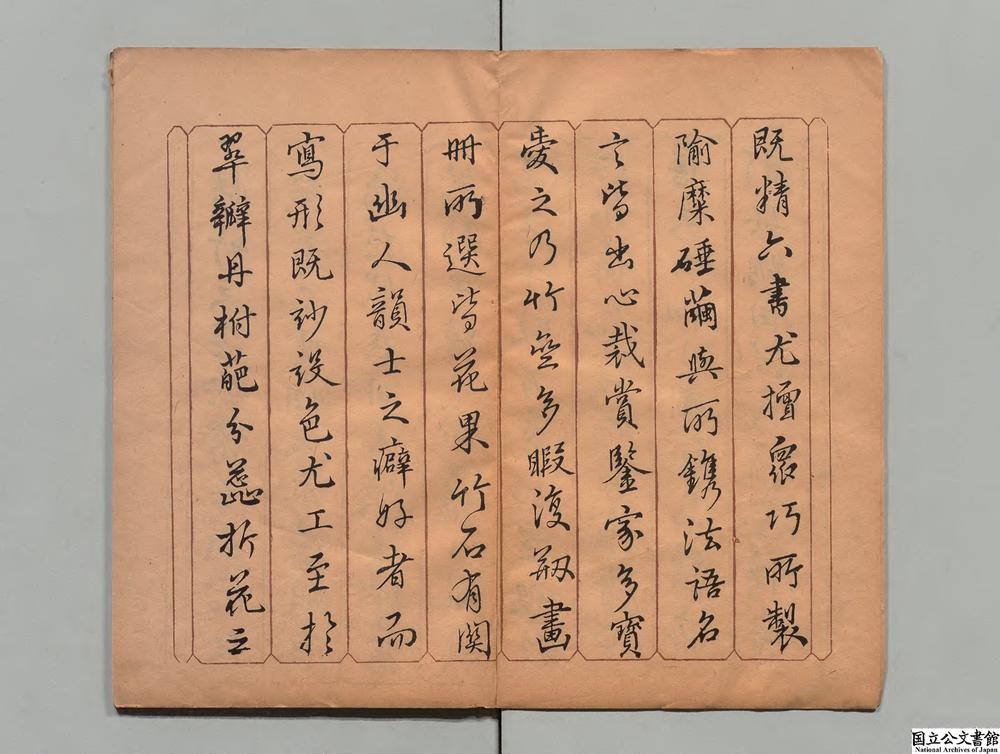 既精六書尤擅眾巧所製
隃糜硾繭與所鐫法語名
言皆出心裁賞鑒家多寶
愛之乃竹齋多暇復剏畫
冊所選皆花果竹石有関
于幽人韻士之癖好者而
寫形既妙設色尤工至於
翠瓣丹柎葩分蕊折花之
国立公文書館
National Archives of Japan